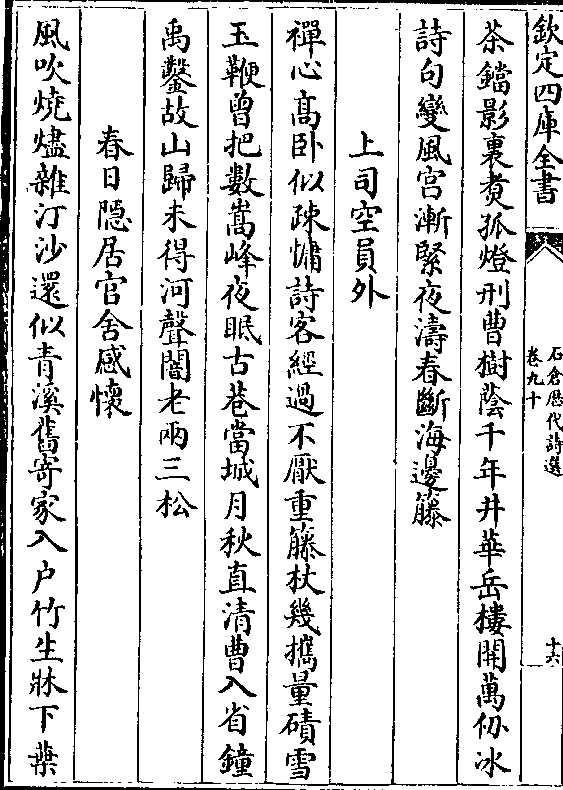 欽定四庫全書
石倉歴代詩選
卷九十
十六
茶鐺影裏煑孤燈刑曹樹蔭千年井華岳樓開萬仭冰
詩句變風宫漸緊夜濤舂斷海邊藤
上司空員外
禪心髙卧似疎慵詩客經過不厭重藤杖幾攜量磧雪
玉鞭曾把數嵩峰夜眠古巷當城月秋直清曹入省鐘
禹鑿故山歸未得河聲闇老兩三松
春日隠居官舍感懷
風吹燒燼雜汀沙還似青溪舊寄家入户竹生牀下葉